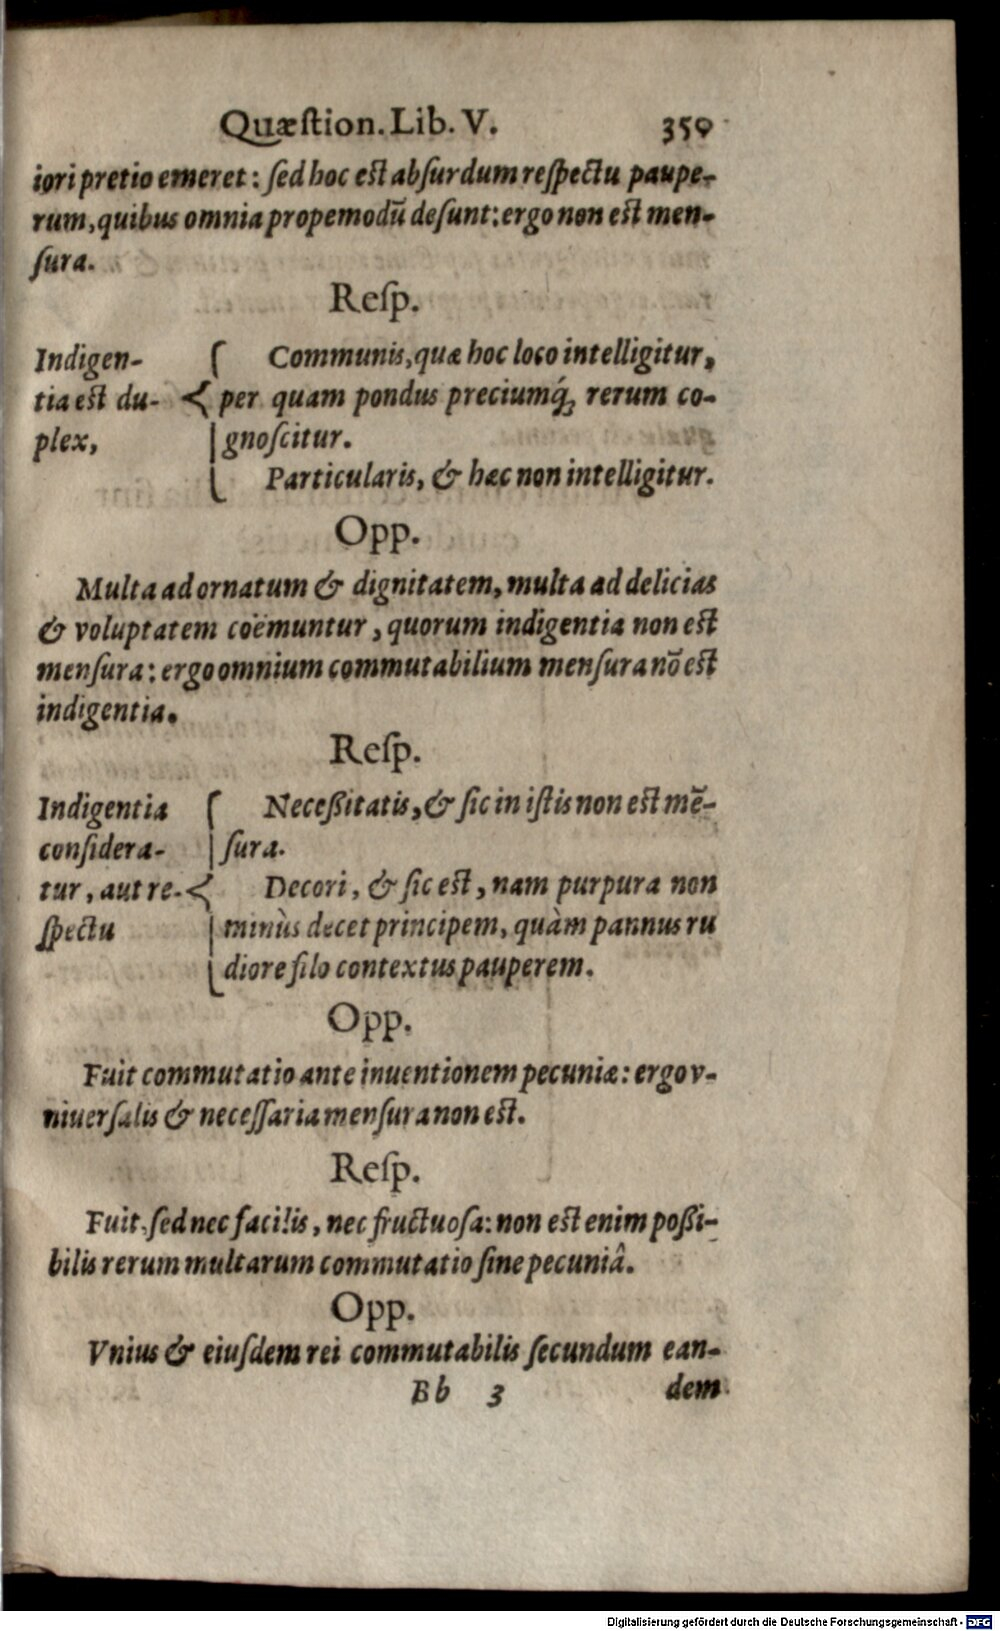 Quæſtion. Lib. V. 359
iori pretio emeret : ſed hoc eſt abſurdum reſpectu paupe-
rum, quibus omnia propemodū deſunt: ergo non eſt men-
ſura.
Reſp.
Indigen-
tia eſt du-
plex,
Communis, quæ hoc loco intelligitur,
per quam pondus preciumq́; rerum co-
gnoſcitur.
Particularis, & hæc non intelligitur.
Opp.
Multa ad ornatum & dignitatem, multa ad delicias
& voluptatem coëmuntur, quorum indigentia non eſt
menſura: ergo omnium commutabilium menſura nō eſt
indigentia.
Reſp.
Indigentia
conſidera-
tur, aut re-
ſpectu
Neceßitatis, & ſic in iſtis non eſt mē-
ſura.
Decori, & ſic eſt, nam purpura non
minùs decet principem, quàm pannus ru
diore filo contextus pauperem.
Opp.
Fuit commutatio ante inuentionem pecuniæ: ergo v-
niuerſalis & neceſſaria menſura non eſt.
Reſp.
Fuit, ſed nec facilis, nec fructuoſa: non eſt enim poßi-
bilis rerum multarum commutatio ſine pecuniâ.
Opp.
Vnius & eiuſdem rei commutabilis ſecundum ean-
Bb 3 dem
Digitalisierung gefördert durch die Deutsche Forschungsgemeinschaft - DFG